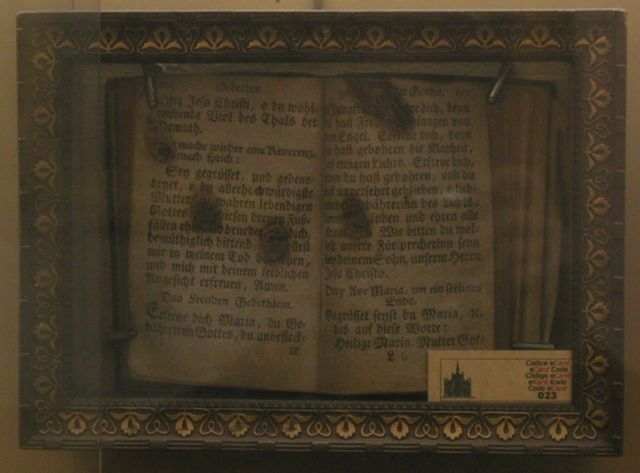 Gebether
Herz Jesu Christi, o du wohl-
riechende Viol des Thals der
Demuth.
mache wieder eine Reverenz,
hernach sprich:
Sey gegrüsset, und gebene-
deyet, o du allerhochwürdigste
Mutter wahren lebendigen
Gottes dreyen Fuß-
fällen
demüthiglich bittend,
mir in meinem Tod
und mich mit deinem leiblichen
Angesicht erfreuen, Amen.
Das Freuden Gebethlein.
Erfreue dich Maria, du Ge-
bährerinn Gottes, du unbefleck-
te
Gottes.
Jungfrau dich, denn
du hast empfangen von
dem Engel. Erfreue dich, denn
du hast gebohren die Klarheit,
des ewigen Lichts. Erfreue dich,
denn du hast gebohren, und du
bist unversehrt geblieben, o lieb-
gebährerinn des Lichts,
loben und ehren alle
Wir bitten du wol-
lest unsere Fürsprecherinn seyn
bey deinem Sohn, unserm Herrn
Jesu Christo.
Drey Ave Maria, um ein seeliges
Ende.
Gegrüsset seyst du Maria, ꝛc.
bis auf diese Worte:
Heilige Maria, Mutter Got-
L 6
Codice eCard
eCard Code
Código eCard
eKard Kode
Code eCard
023